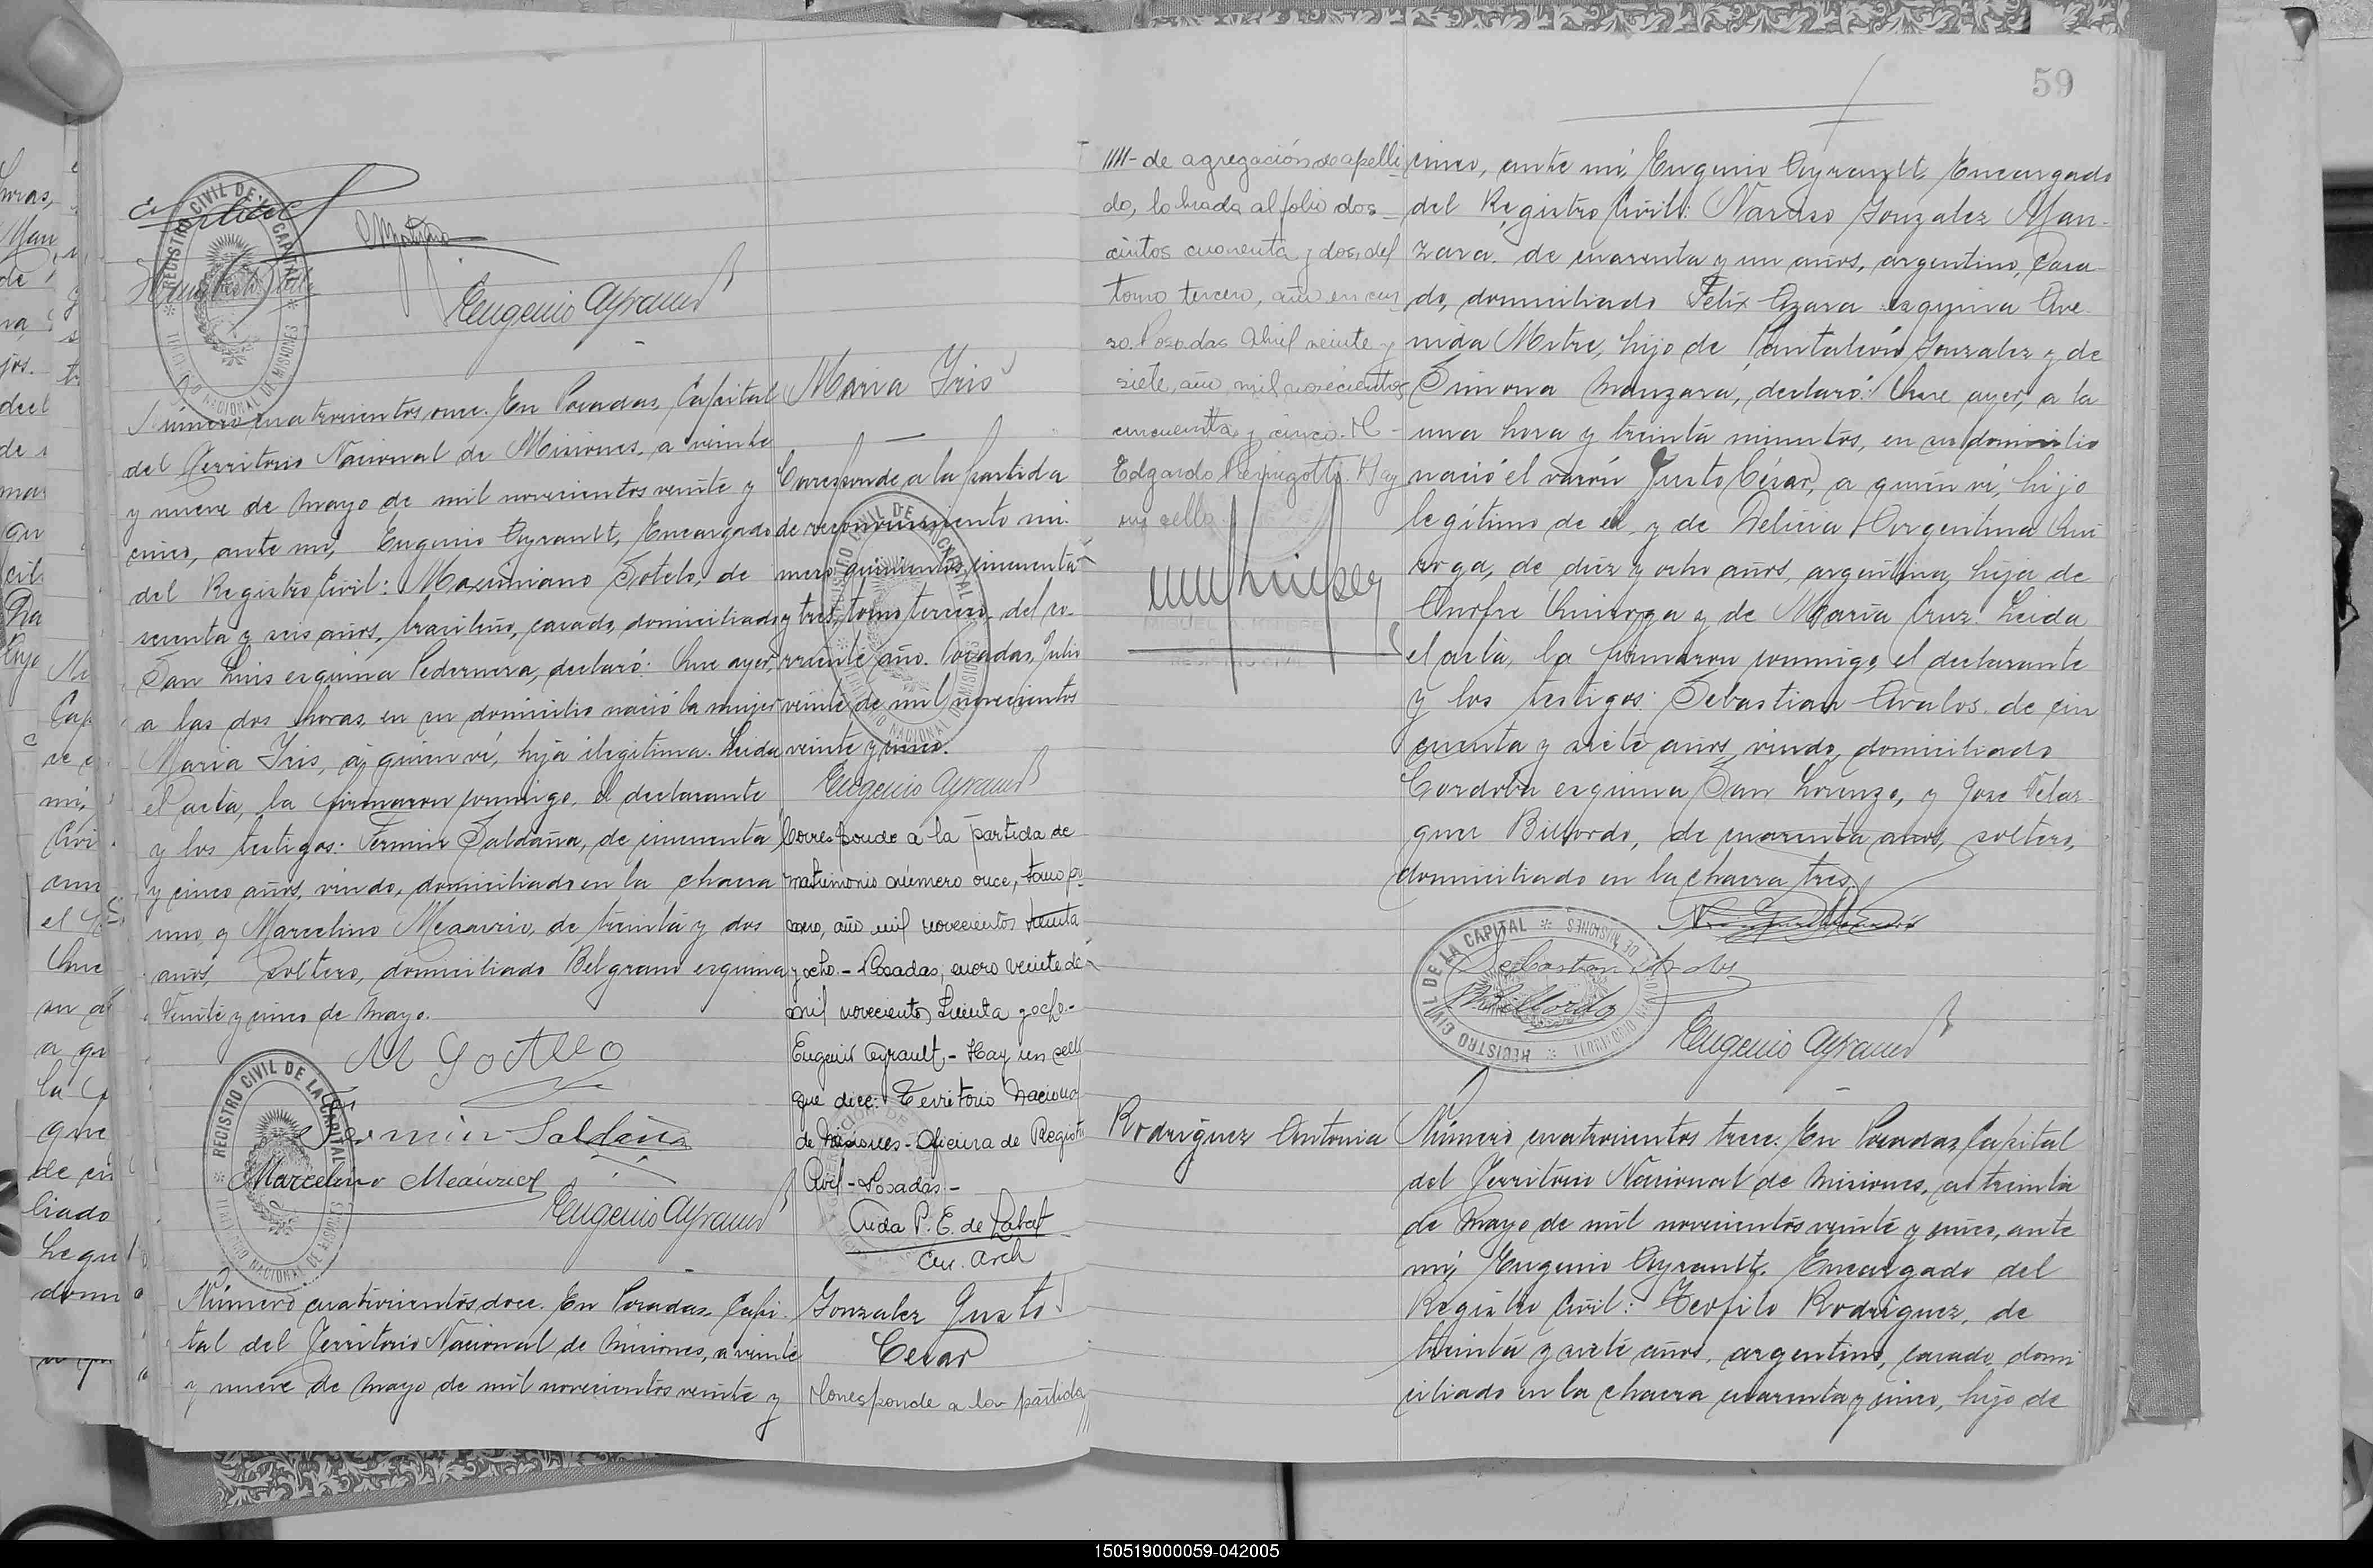 Eugenio Ayrault
Número cuatrocientos once. En Posadas, Capital
del Territorio Nacional de Misiones, a veinte
y nueve de Mayo de mil novecientos veinte y
cinco, ante mi, Eugenio Ayrault, Encargado
del Registro Civil: Maximiano Sotelo, de
sesenta y seis años, brasileño, casado, domiciliado
San Luis esquina Pedernera, declaró: Que ayer,
a las dos horas, en su domicilio nació la mujer
Maria Iris, a quien ví, hija ilegítima. Leida
el acta, la firmaron conmigo, el declarante
y los testigos: Fermin Saldaña, de cincuenta
y cinco años, viudo, domiciliado en la chacra
uno, y Marcelino Meaurio, de treinta y dos
años, soltero, domiciliado Belgrano esquina
Veinte y cinco de Mayo.
M Sotelo
Fermin Saldaña
Marcelino Meaurio
Eugenio Ayrault
REGISTRO CIVIL DE LA CAPITAL
TERRITORIO NACIONAL DE MISIONES
Número cuatrocientos doce. En Posadas, Capi-
tal del Territorio Nacional de Misiones, a veinte
y nueve de Mayo de mil novecientos veinte y
Maria Iris
Corresponde a la partida
de reconocimiento nú-
mero quinientos cincuenta
y tres, tomo tercero, del co-
rriente año. Posadas, Julio
veinte de mil novecientos
veinte y cinco.
Eugenio Ayrault
Corresponde a la partida de
matrimonio número once, tomo pri
mero, año mil novecientos treinta
y ocho.- Posadas, enero veinte de
mil novecientos treinta y ocho.-
Eugenio Ayrault.- Hay un sello
que dice: Territorio Nacional
de Misiones - Oficina de Registro
Civil - Posadas.-
Aida P. E. de Labat
Enc. Arch
Gonzalez Justo
Cesar
Corresponde a la partida
59
//// de agregación de apelli-
do, labrada al folio dos-
cientos cuarenta y dos, del
tomo tercero, año en cur-
so. Posadas Abril veinte y
siete, año mil novecientos
cincuenta y cinco. M-
Edgardo Pernigotti. Hay
un sello.
cinco, ante mi, Eugenio Ayrault, Encargado
del Registro Civil: Narciso Gonzalez Man-
zara, de cuarenta y un años, argentino, casa-
do, domiciliado Félix Azara esquina Ave-
nida Mitre, hijo de Pantaleón Gonzalez y de
Simona Manzara, declaró: Que ayer, a la
una hora y treinta minutos, en su domicilio
nació el varón Justo César, a quién ví, hijo
legítimo de él y de Delicia Argentina Qui
roga, de diez y ocho años, argentina, hija de
Onofre Quiroga y de María Cruz. Leida
el acta, la firmaron conmigo, el declarante
y los testigos: Sebastian Avalos, de cin
cuenta y siete años, viudo, domiciliado
Cordoba esquina San Lorenzo, y Jose Velaz-
quez Billordo, de cuarenta años, soltero,
domiciliado en la chacra tres.
Sebastian Avalos
Billordo
Eugenio Ayrault
REGISTRO CIVIL DE LA CAPITAL
Rodriguez Antonia
Número cuatrocientos trece. En Posadas, Capital
del Territorio Nacional de Misiones, a treinta
de Mayo de mil novecientos veinte y cinco, ante
mi, Eugenio Ayrault, Encargado del
Registro Civil: Teofilo Rodriguez, de
treinta y siete años, argentino, casado, domi
ciliado en la chacra cuarenta y cinco, hijo de
150519000059-042005